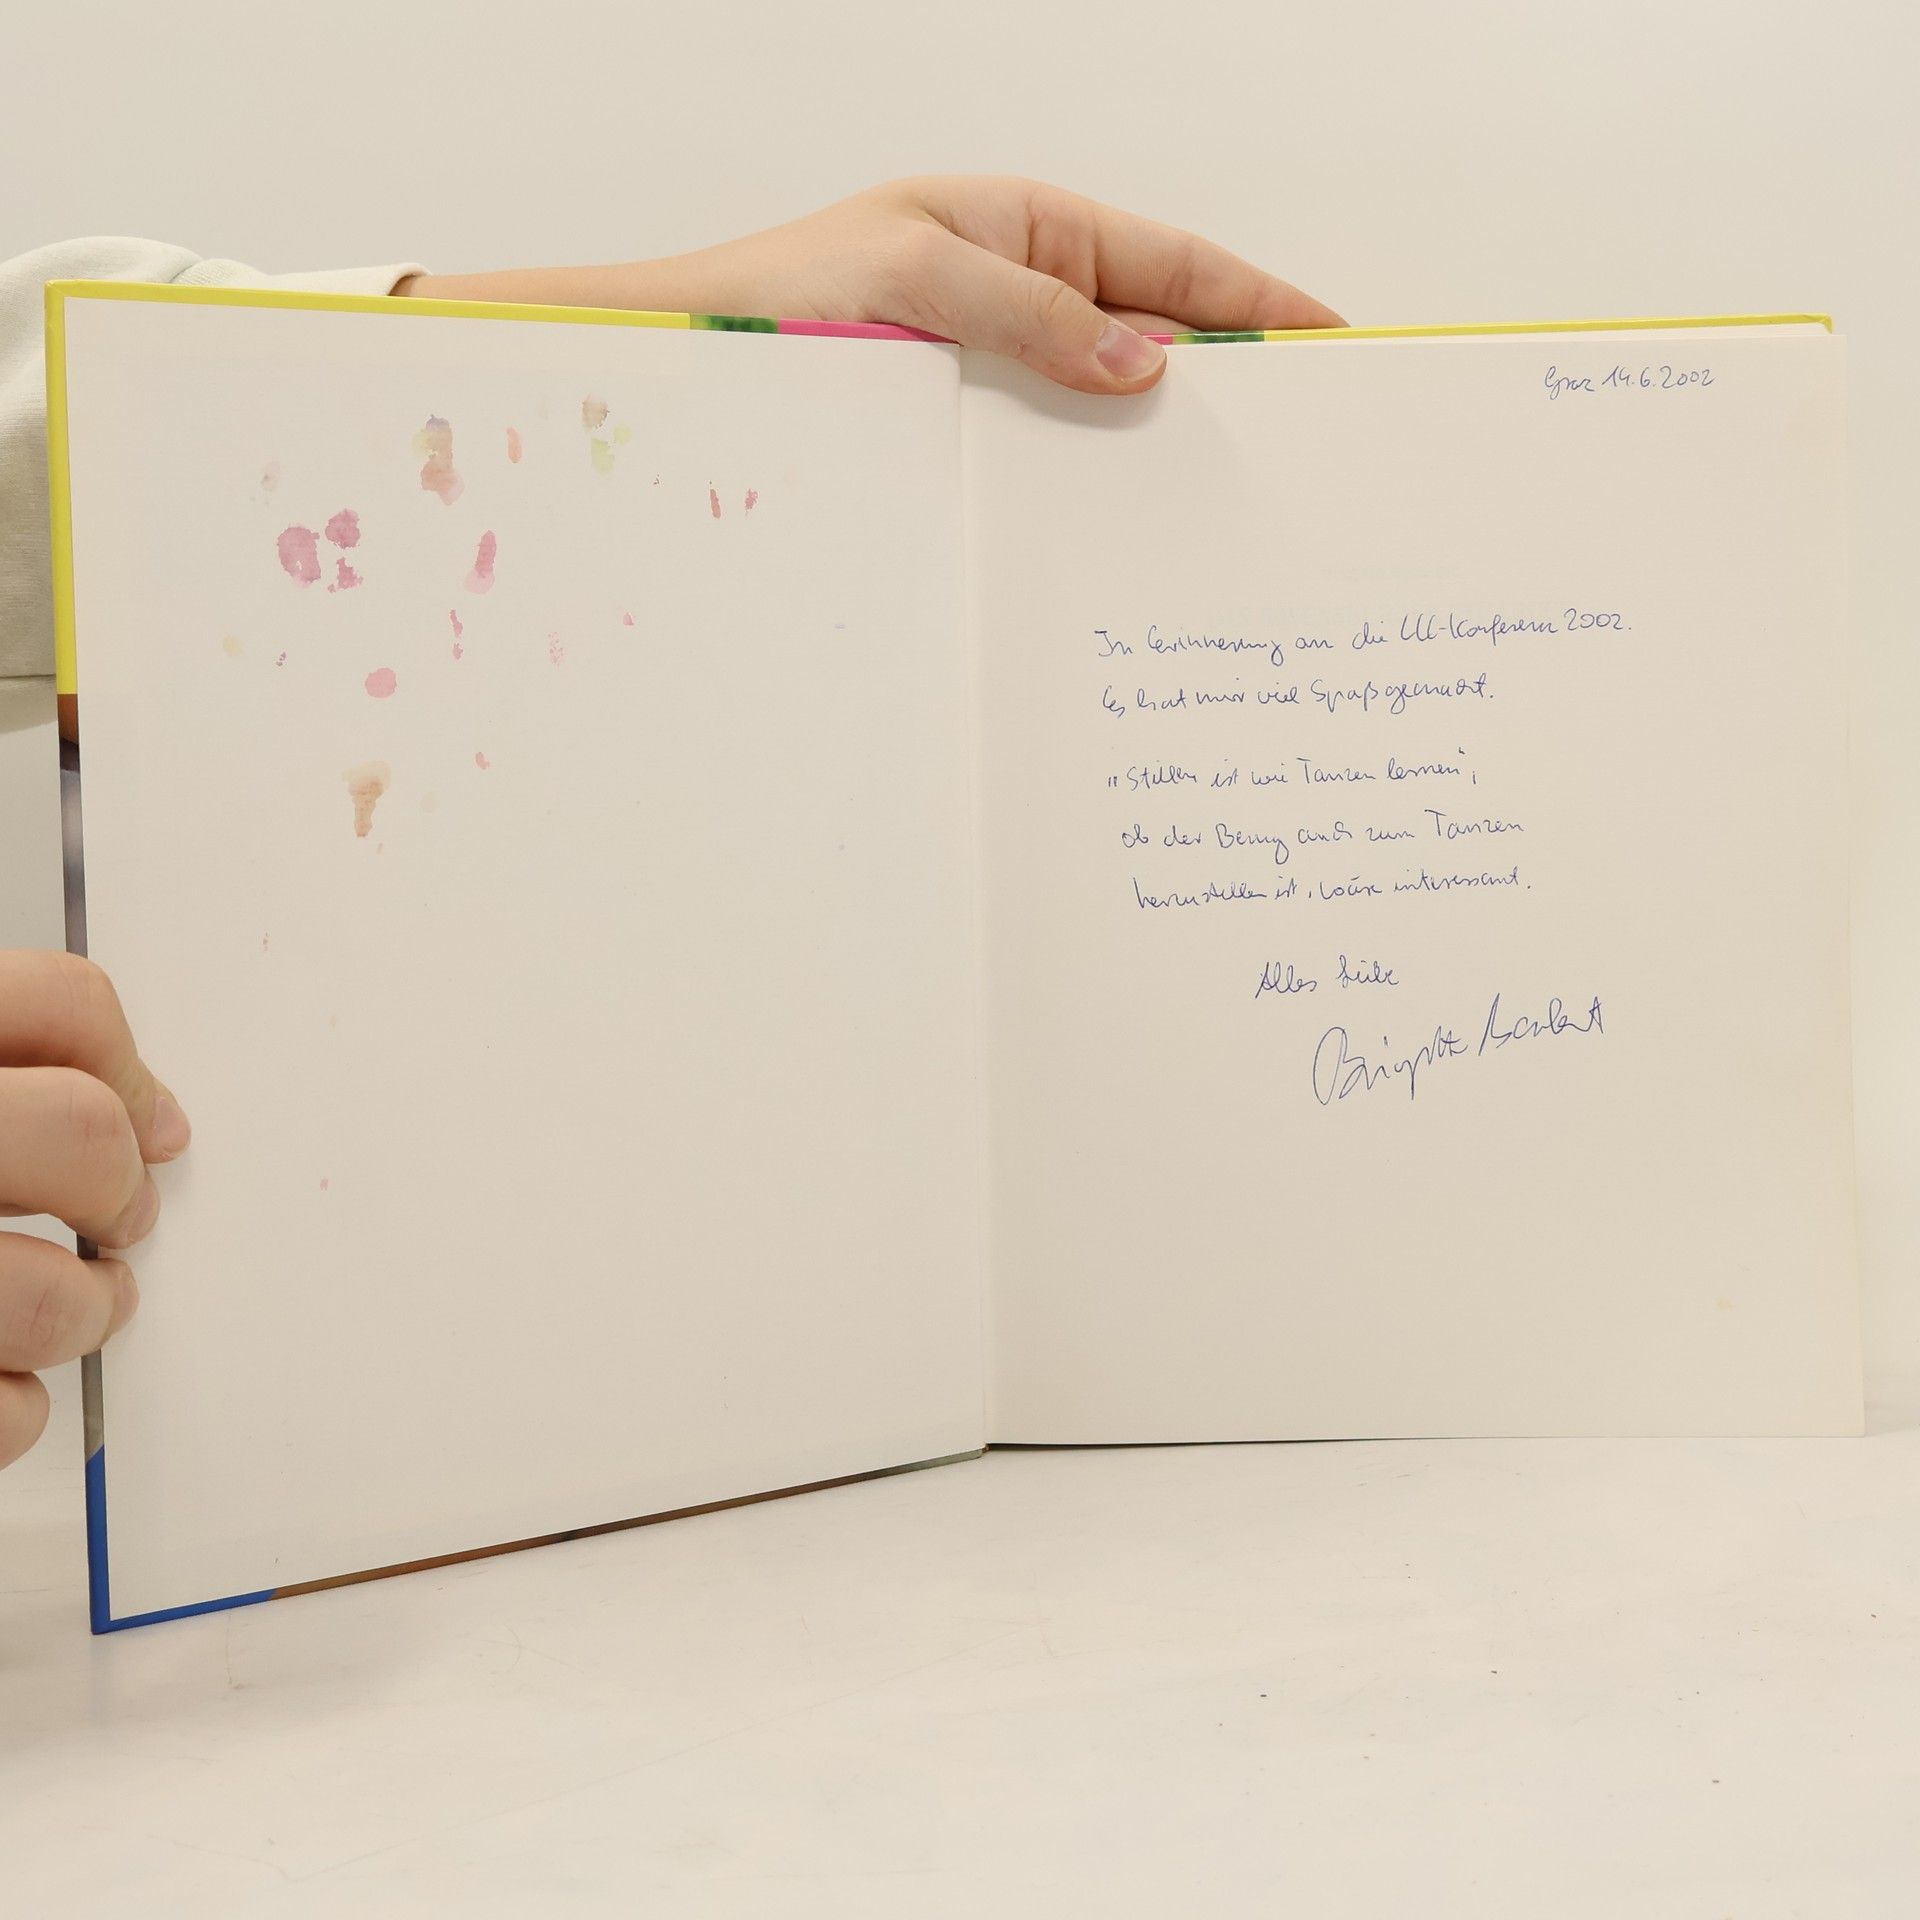 Graz 14.6.2002
In Erinnerung an die LLL-Konferenz 2002.
Es hat mir viel Spaß gemacht.
"Stillen ist wie Tanzen lernen",
ob der Bezug auch zum Tanzen
herzustellen ist, wäre interessant.
Alles Liebe
Brigitte